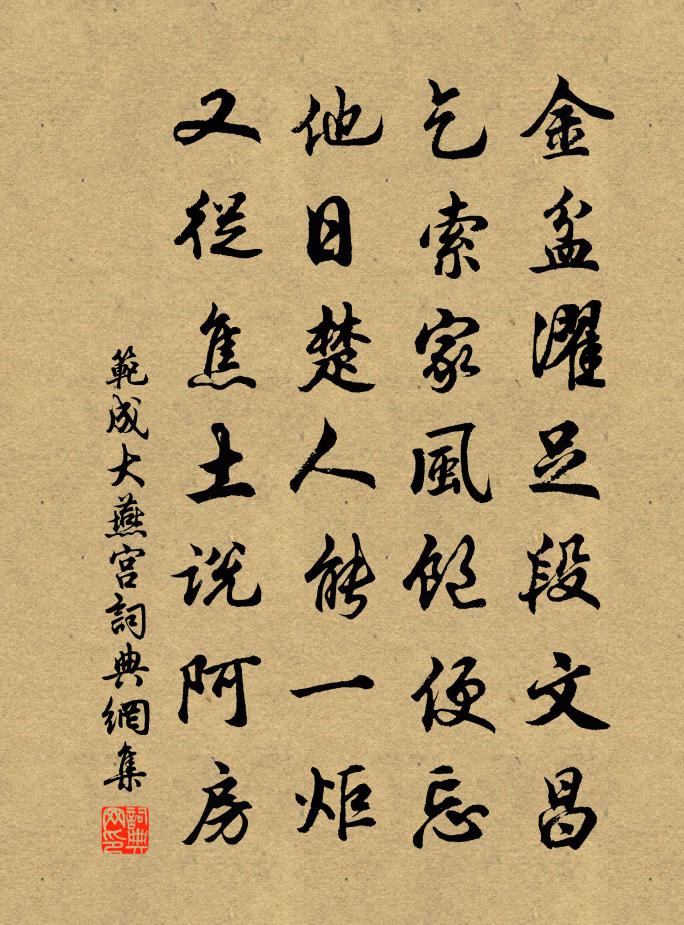 金盆濯足段文昌
乞索家風飽便忘
他日楚人能一炬
又從焦土説阿房
範成大燕宫詞典網集
詞典網印